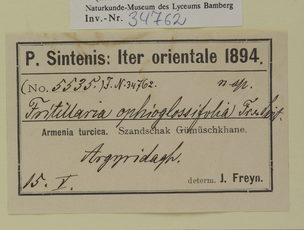 Naturkunde-Museum des Lyceums Bamberg
Inv.-Nr. 34762
P. Sintenis: Iter orientale 1894.
(No. 5535.) J.N. 34762.
n. sp.
Fritillaria ophioglossifolia Fr. & Sint.
Armenia turcica. Szandschak Gümüschkhane.
Argyridagh.
15. V.
determ. J. Freyn.